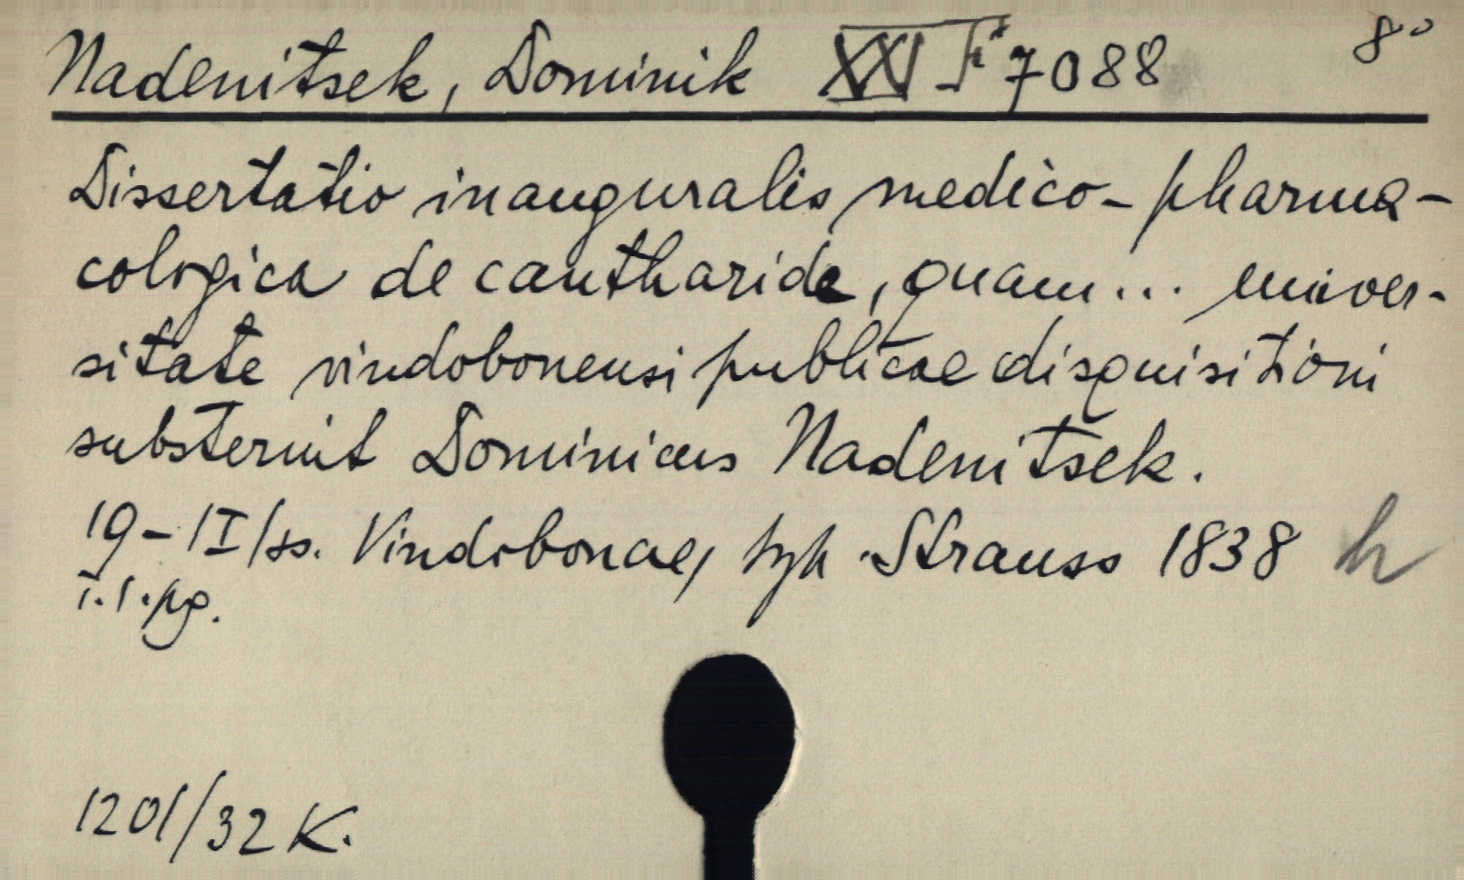 Nadenitsek, Dominik XXI F 7088 8°
Dissertatio inauguralis medico-pharma-
cologica de cantharide, quam... univer-
sitate vindobonensi publicae disquisitioni
substernit Dominicus Nadenitsek.
19-1I/ss. Vindobonae, typ. Strauss 1838 h
I.1.pg.
1201/32 K.